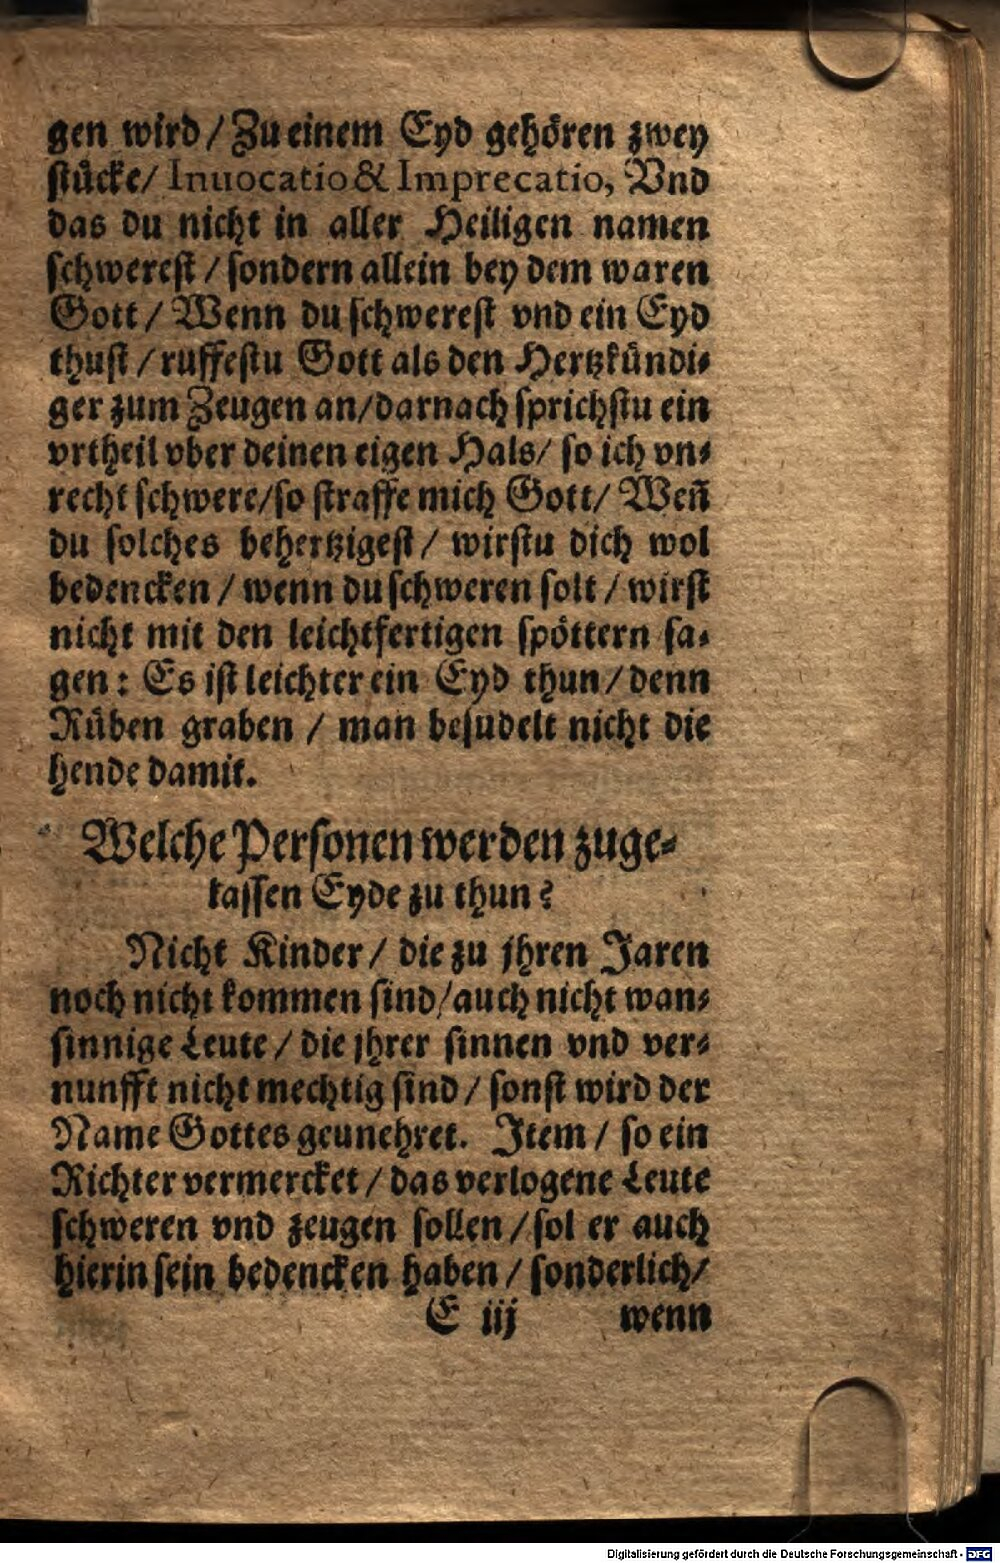 gen wird / Zu einem Eyd gehören zwey
stücke / Inuocatio & Imprecatio, Vnd
das du nicht in aller Heiligen namen
schwerest / sondern allein bey dem waren
Gott / Wenn du schwerest vnd ein Eyd
thust / ruffestu Gott als den Hertzkündi-
ger zum Zeugen an / darnach sprichstu ein
vrtheil vber deinen eigen Hals / so ich vn-
recht schwere / so straffe mich Gott / Weñ
du solches behertzigest / wirstu dich wol
bedencken / wenn du schweren solt / wirst
nicht mit den leichtfertigen spöttern sa-
gen: Es ist leichter ein Eyd thun / denn
Rüben graben / man besudelt nicht die
hende damit.
Welche Personen werden zuge-
lassen Eyde zu thun?
Nicht Kinder / die zu jhren Jaren
noch nicht kommen sind / auch nicht wan-
sinnige Leute / die jhrer sinnen vnd ver-
nunfft nicht mechtig sind / sonst wird der
Name Gottes geunehret. Item / so ein
Richter vermercket / das verlogene Leute
schweren vnd zeugen sollen / sol er auch
hierin sein bedencken haben / sonderlich /
E iij wenn
Digitalisierung gefördert durch die Deutsche Forschungsgemeinschaft - DFG